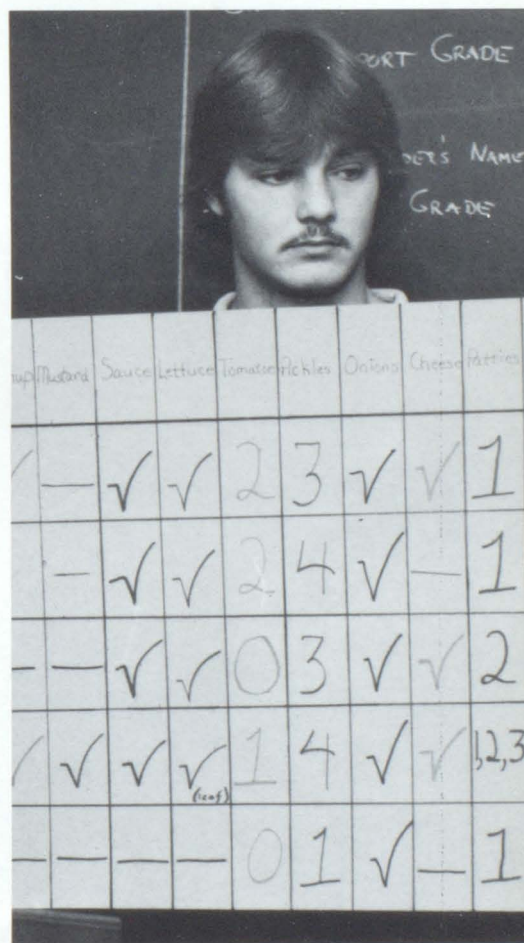 PORT GRADE
DER'S NAME
GRADE
up Mustard Sauce Lettuce Tomatoe Pickles Onions Cheese Patties
√ — √ √ 2 3 √ √ 1
— √ √ 2 4 √ — 1
— — √ √ 0 3 √ √ 2
√ √ √ √ (leaf) 1 4 √ √ 1,2,3
— — — — 0 1 √ — 1